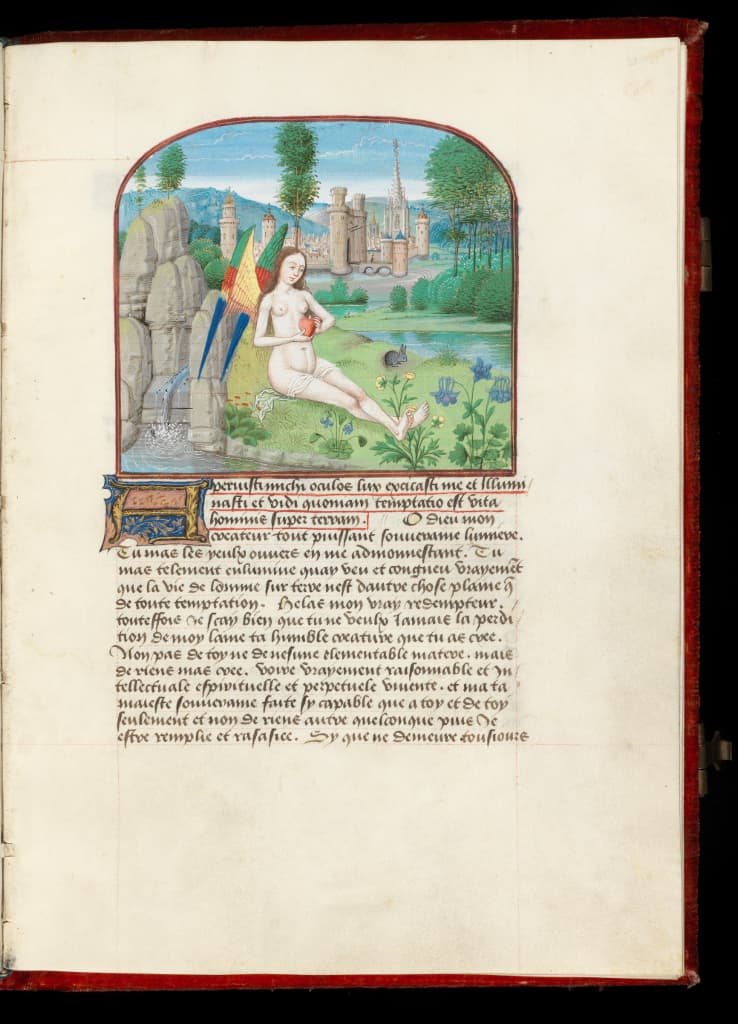 Aperuisti michi oculos lux excitasti me et Illumi
nasti et vidi quoniam temptatio est vita
hominis super terram. O dieu mon
createur tout puissant souveraine lumiere.
Tu mas les yeulx ouvers en me admonnestant. Tu
mas telement enlumine quay veu et congneu vrayemẽt
que la vie de lomme sur terre nest dautre chose plaine q̃
de toute temptation. Helas mon vray redempteur.
touteffois Je scay bien que tu ne veulx Jamais la perdi
tion de moy lame ta humble creature que tu as cree.
Non pas de toy ne de nesune elementable matere. mais
de riens mas cree. voire vrayement raisonnable et In
tellectuale espirituelle et perpetuele vivente. et ma ta
maieste souveraine faite sy capable que a toy et de toy
seulement et non de riens autre quelconque puis Je
estre remplie et rasasiee. Sy que ne demeure tousiours